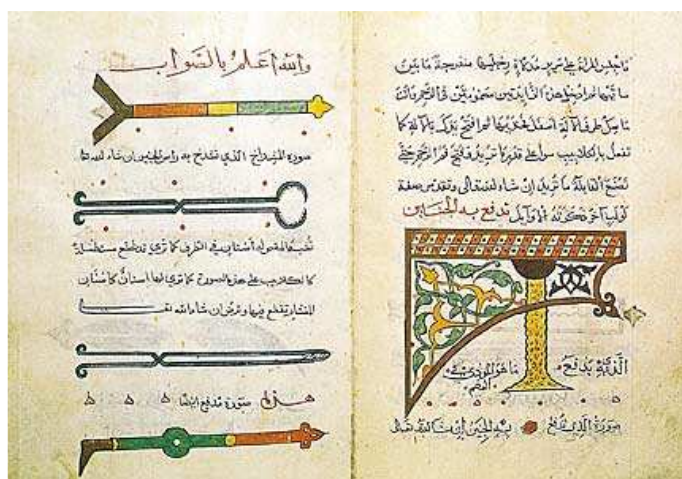 ما تجلس المرأة على سرير مدلاة رجليها منفرجة ما بين
ساقيها ثم ادخل هذين الزايدتين مضمومتين في الرحم وانت
ماسك طرف الآلة اسفل فخذيها ثم افتح يدك بالآلة كما
تفعل بالكلاليب سوا على قدر ما تريد تفتح فم الرحم حتى
تصنع القابلة ما تريد ان شاء الله تعالى وتقدس صفة
لولب آخر ذكرته الاوايل تدفع به الجنين
صورة الذي يدفع به الجنين ان شاء الله تعالى
والله اعلم بالصواب
صورة المشداخ الذي تشدخ به راس الجنين ان شاء الله تعا
تشبه المقص له أسنان في الطرف كما ترى وقد تصنع مستطيلة
كالكلاليب على هذه الصورة كما ترى لها اسنان كاسنان
المنشار تقطع فيها وترض ان شاء الله تعـ
هذه صورة مدفع ايضا